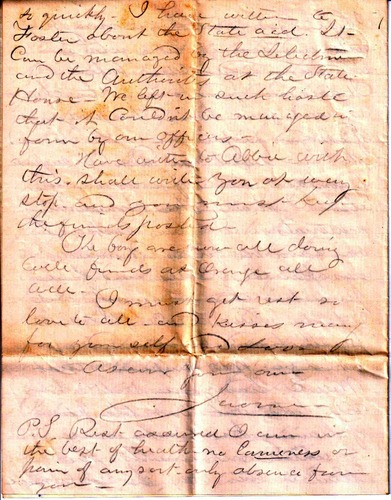 so quickly I have written to
Foster about the State aid. It
Can be managed by the Selectmen
and the Authorities at the State
House - We left in such haste
that it couldn't be managed in
form by our officers -
Have written to Abbie with
this. shall write you at every
stop and you must keep
the friends posted -
The boys are now all doing
well friends at Orange all
well -
I must get rest so
love to all - and kisses many
for yourself and
as ever your own
P.S. Rest assured I am in
the best of health no lameness or
pain of any sort only absence from
you -